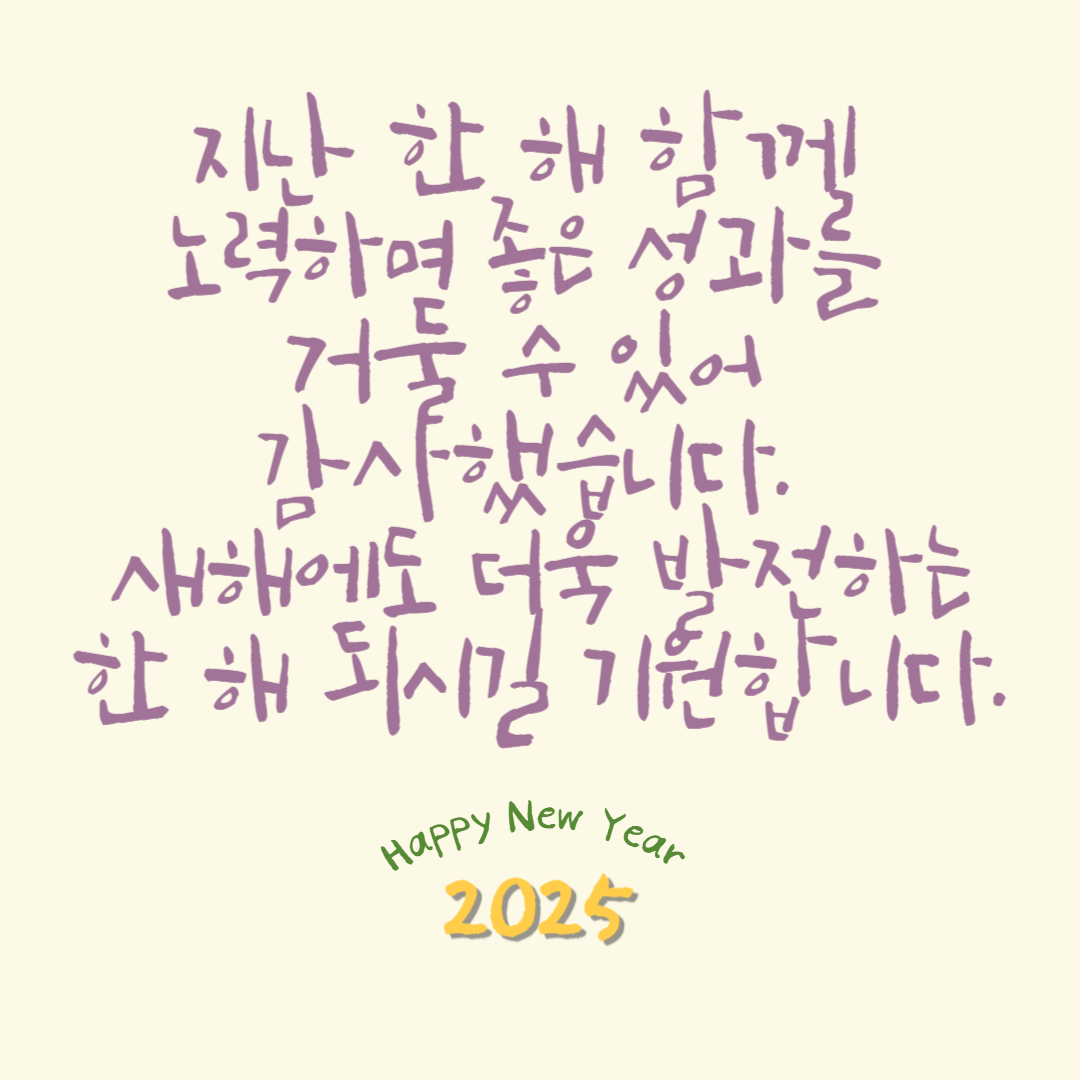 지난 한 해 함께
노력하며 좋은 성과를
거둘 수 있어
감사했습니다.
새해에도 더욱 발전하는
한 해 되시길 기원합니다.
Happy New Year
2025